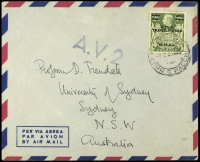 TRIPOLITANIA
A.V.2
Professor D. Trendall
University of Sydney
Sydney
N.S.W
Australia
PER VIA AEREA
PAR AVION
BY AIR MAIL